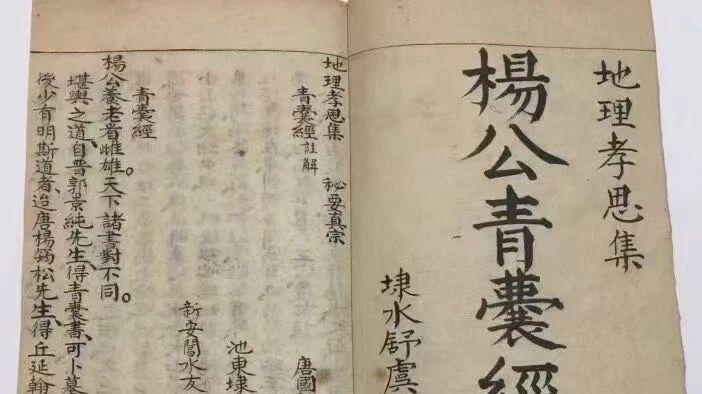 地理孝思集
楊公青囊經
埭水舒虞
地理孝思集
青囊經註解 秘要真宗
唐國
池東埭
新安閶水友
青囊經
楊公養老看雌雄。天下諸書對不同。
堪輿之道、自晋郭景純先生、得青囊書、可卜墓
後少有明斯道者、迨唐楊筠松先生、得丘延翰